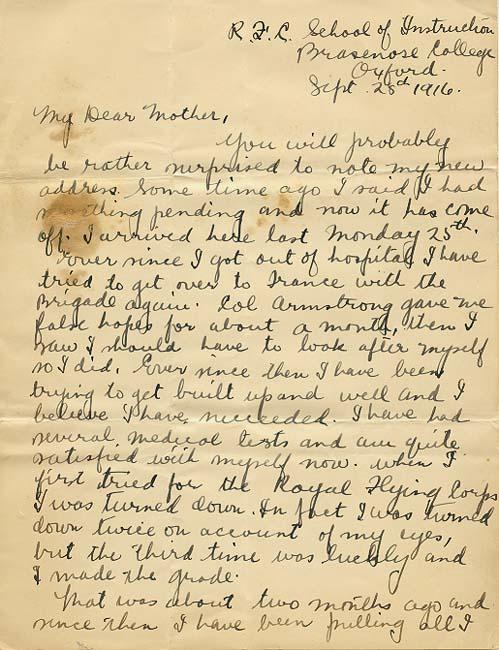 R.F.C. School of Instruction
Brasenose College
Oxford.
Sept. 25th 1916.
My Dear Mother,
You will probably
be rather surprised to note my new
address. Some time ago I said I had
something pending and now it has come
off. I arrived here last Monday 25th.
Ever since I got out of hospital I have
tried to get over to France with the
Brigade again. Col Armstrong gave me
false hopes for about a month, then I
saw I should have to look after myself
so I did. Ever since then I have been
trying to get built up and well and I
believe I have succeeded. I have had
several medical tests and am quite
satisfied with myself now. When I
first tried for the Royal Flying Corps
I was turned down. In fact I was turned
down twice on account of my eyes,
but the third time was lucky and
I made the grade.
That was about two months ago and
since then I have been pulling all I